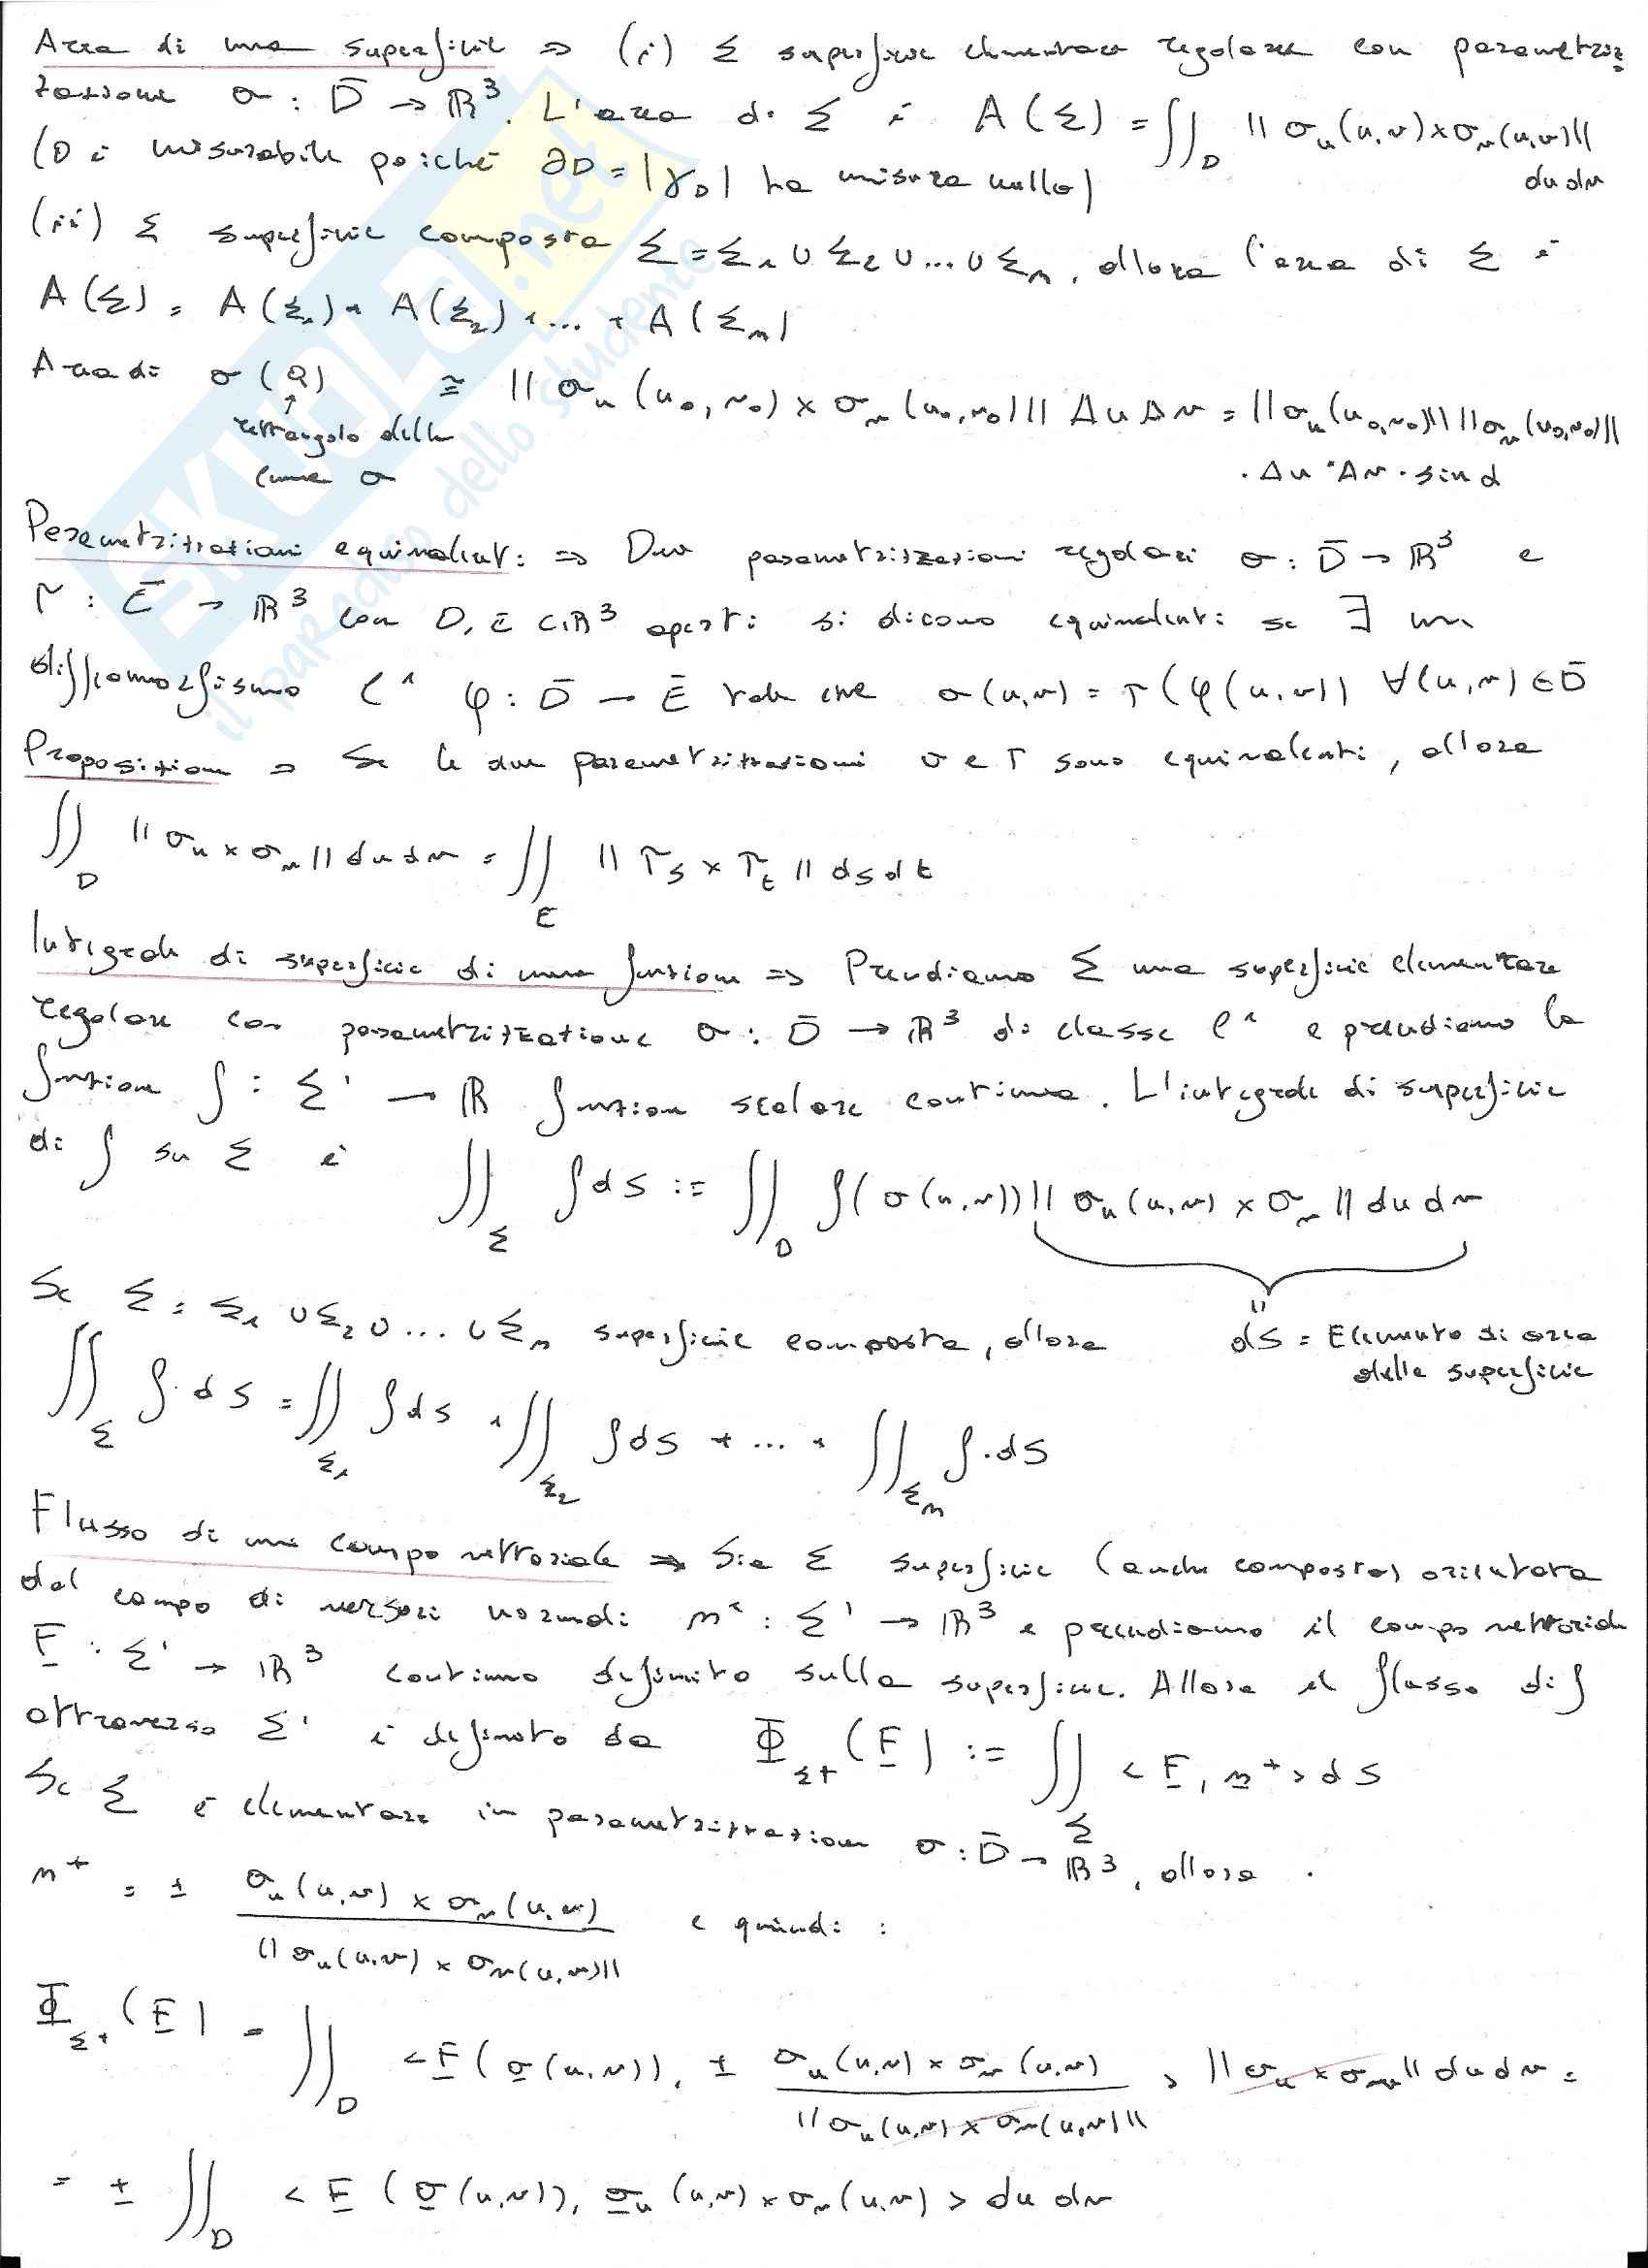 Area di una superficie ⇒ (i) Σ superficie elementare regolare con parametriz
zazione σ : D̄ → ℝ³. L'area di Σ è A(Σ) = ∬_D ||σ_u(u,v)×σ_v(u,v)||
(D è misurabile poiché ∂D = |γ_D| ha misura nulla) du dv
(ii) Σ superficie composta Σ = Σ₁ ∪ Σ₂ ∪ ... ∪ Σ_n, allora l'area di Σ è
A(Σ) = A(Σ₁) + A(Σ₂) + ... + A(Σ_n)
Area di σ(Q) ≅ ||σ_u(u₀,v₀) × σ_v(u₀,v₀)|| Δu Δv = ||σ_u(u₀,v₀)|| ||σ_v(u₀,v₀)||
↑
rettangolo della
curva σ · Δu · Δv · sin α
Parametrizzazioni equivalenti ⇒ Due parametrizzazioni regolari σ : D̄ → ℝ³ e
τ : Ē → ℝ³ con D, E ⊂ ℝ³ aperti si dicono equivalenti se ∃ un
diffeomorfismo C¹ φ : D̄ → Ē tale che σ(u,v) = τ(φ(u,v)) ∀(u,v) ∈ D̄
Proposizione ⇒ Se le due parametrizzazioni σ e τ sono equivalenti, allora
∬_D ||σ_u × σ_v|| du dv = ∬_E ||τ_s × τ_t|| ds dt
Integrale di superficie di una funzione ⇒ Prendiamo Σ una superficie elementare
regolare con parametrizzazione σ : D̄ → ℝ³ di classe C¹ e prendiamo la
funzione f : Σ → ℝ funzione scalare continua. L'integrale di superficie
di f su Σ è ∬_Σ f dS := ∬_D f(σ(u,v)) ||σ_u(u,v) × σ_v|| du dv
Se Σ = Σ₁ ∪ Σ₂ ∪ ... ∪ Σ_n superficie composta, allora
dS = Elemento di area
della superficie
∬_Σ f·dS = ∬_Σ₁ f dS + ∬_Σ₂ f dS + ... + ∬_Σ_n f·dS
Flusso di un campo vettoriale ⇒ Sia Σ superficie (anche composta) orientata
dal campo di versori normali n⁺ : Σ → ℝ³ e prendiamo il campo vettoriale
F : Σ → ℝ³ continuo definito sulla superficie. Allora il flusso di f
attraverso Σ è definito da Φ_Σ⁺(F) := ∬_Σ <F, n⁺> dS
Se Σ è elementare in parametrizzazione σ : D̄ → ℝ³, allora
n⁺ = ± σ_u(u,v) × σ_v(u,v) / ||σ_u(u,v) × σ_v(u,v)|| e quindi :
Φ_Σ⁺(F) = ∬_D <F(σ(u,v)), ± σ_u(u,v) × σ_v(u,v) / ||σ_u(u,v) × σ_v(u,v)|| > ||σ_u × σ_v|| du dv =
= ± ∬_D <F(σ(u,v)), σ_u(u,v) × σ_v(u,v)> du dv
SKUOLa.net
il paradiso dello studente